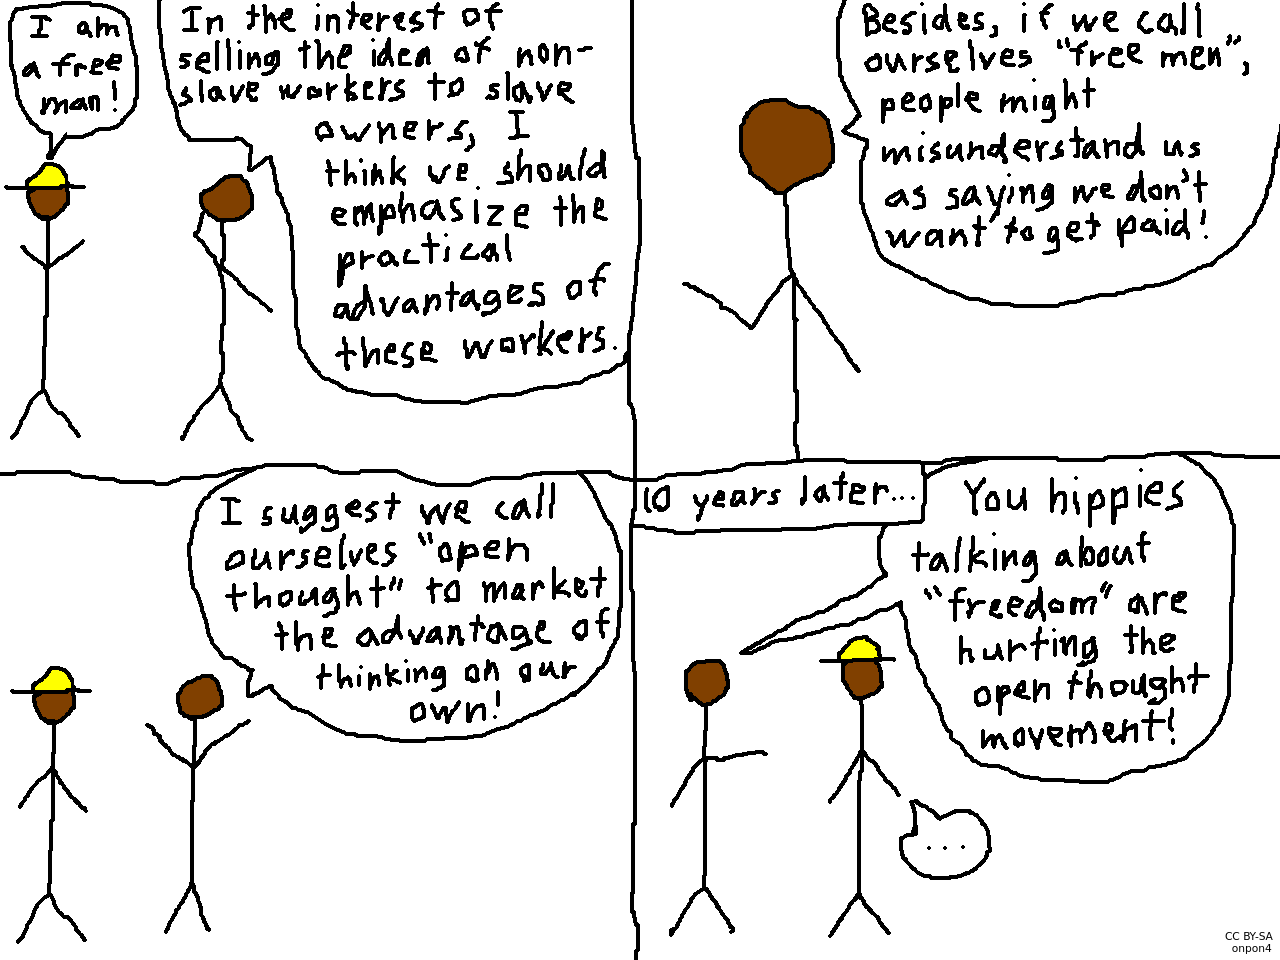 I am
a free
man!
In the interest of
selling the idea of non-
slave workers to slave
owners, I
think we should
emphasize the
practical
advantages of
these workers.
Besides, if we call
ourselves "free men",
people might
misunderstand us
as saying we don't
want to get paid!
I suggest we call
ourselves "open
thought" to market
the advantage of
thinking on our
own!
10 years later...
You hippies
talking about
"freedom" are
hurting the
open thought
movement!
...
CC BY-SA
onpon4